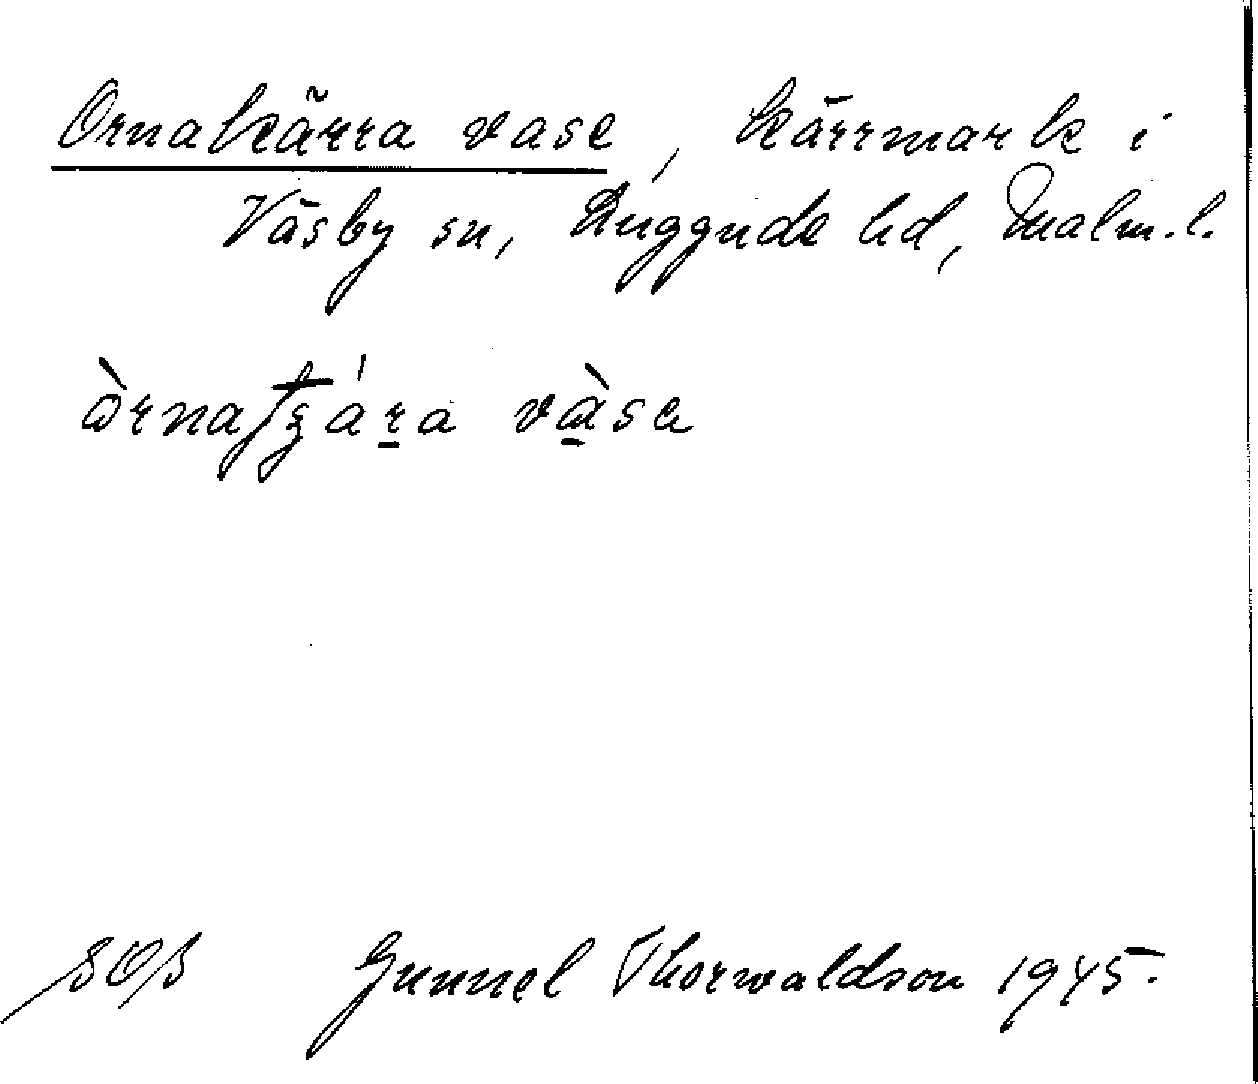 Ornakärra vase, kärrmark i
Väsby sn, Luggude hd, Malm.l.
vàsa
Gunnel Thorwaldson 1945.